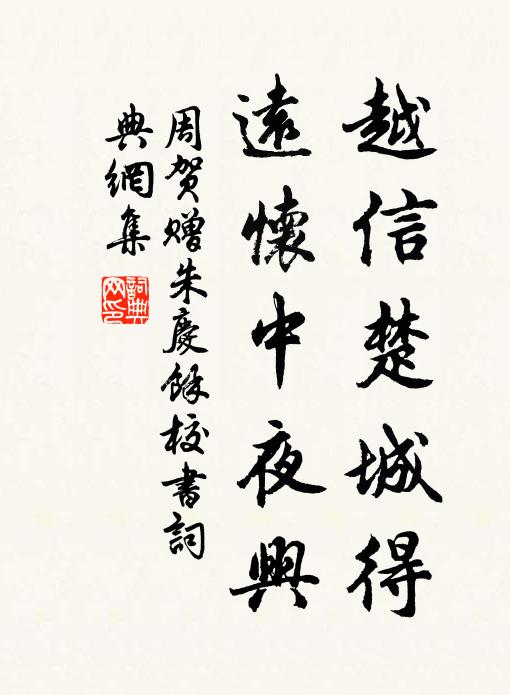 越信楚城得
遠懷中夜興
周賀贈朱慶餘校書詞
典網集
詞典
网印